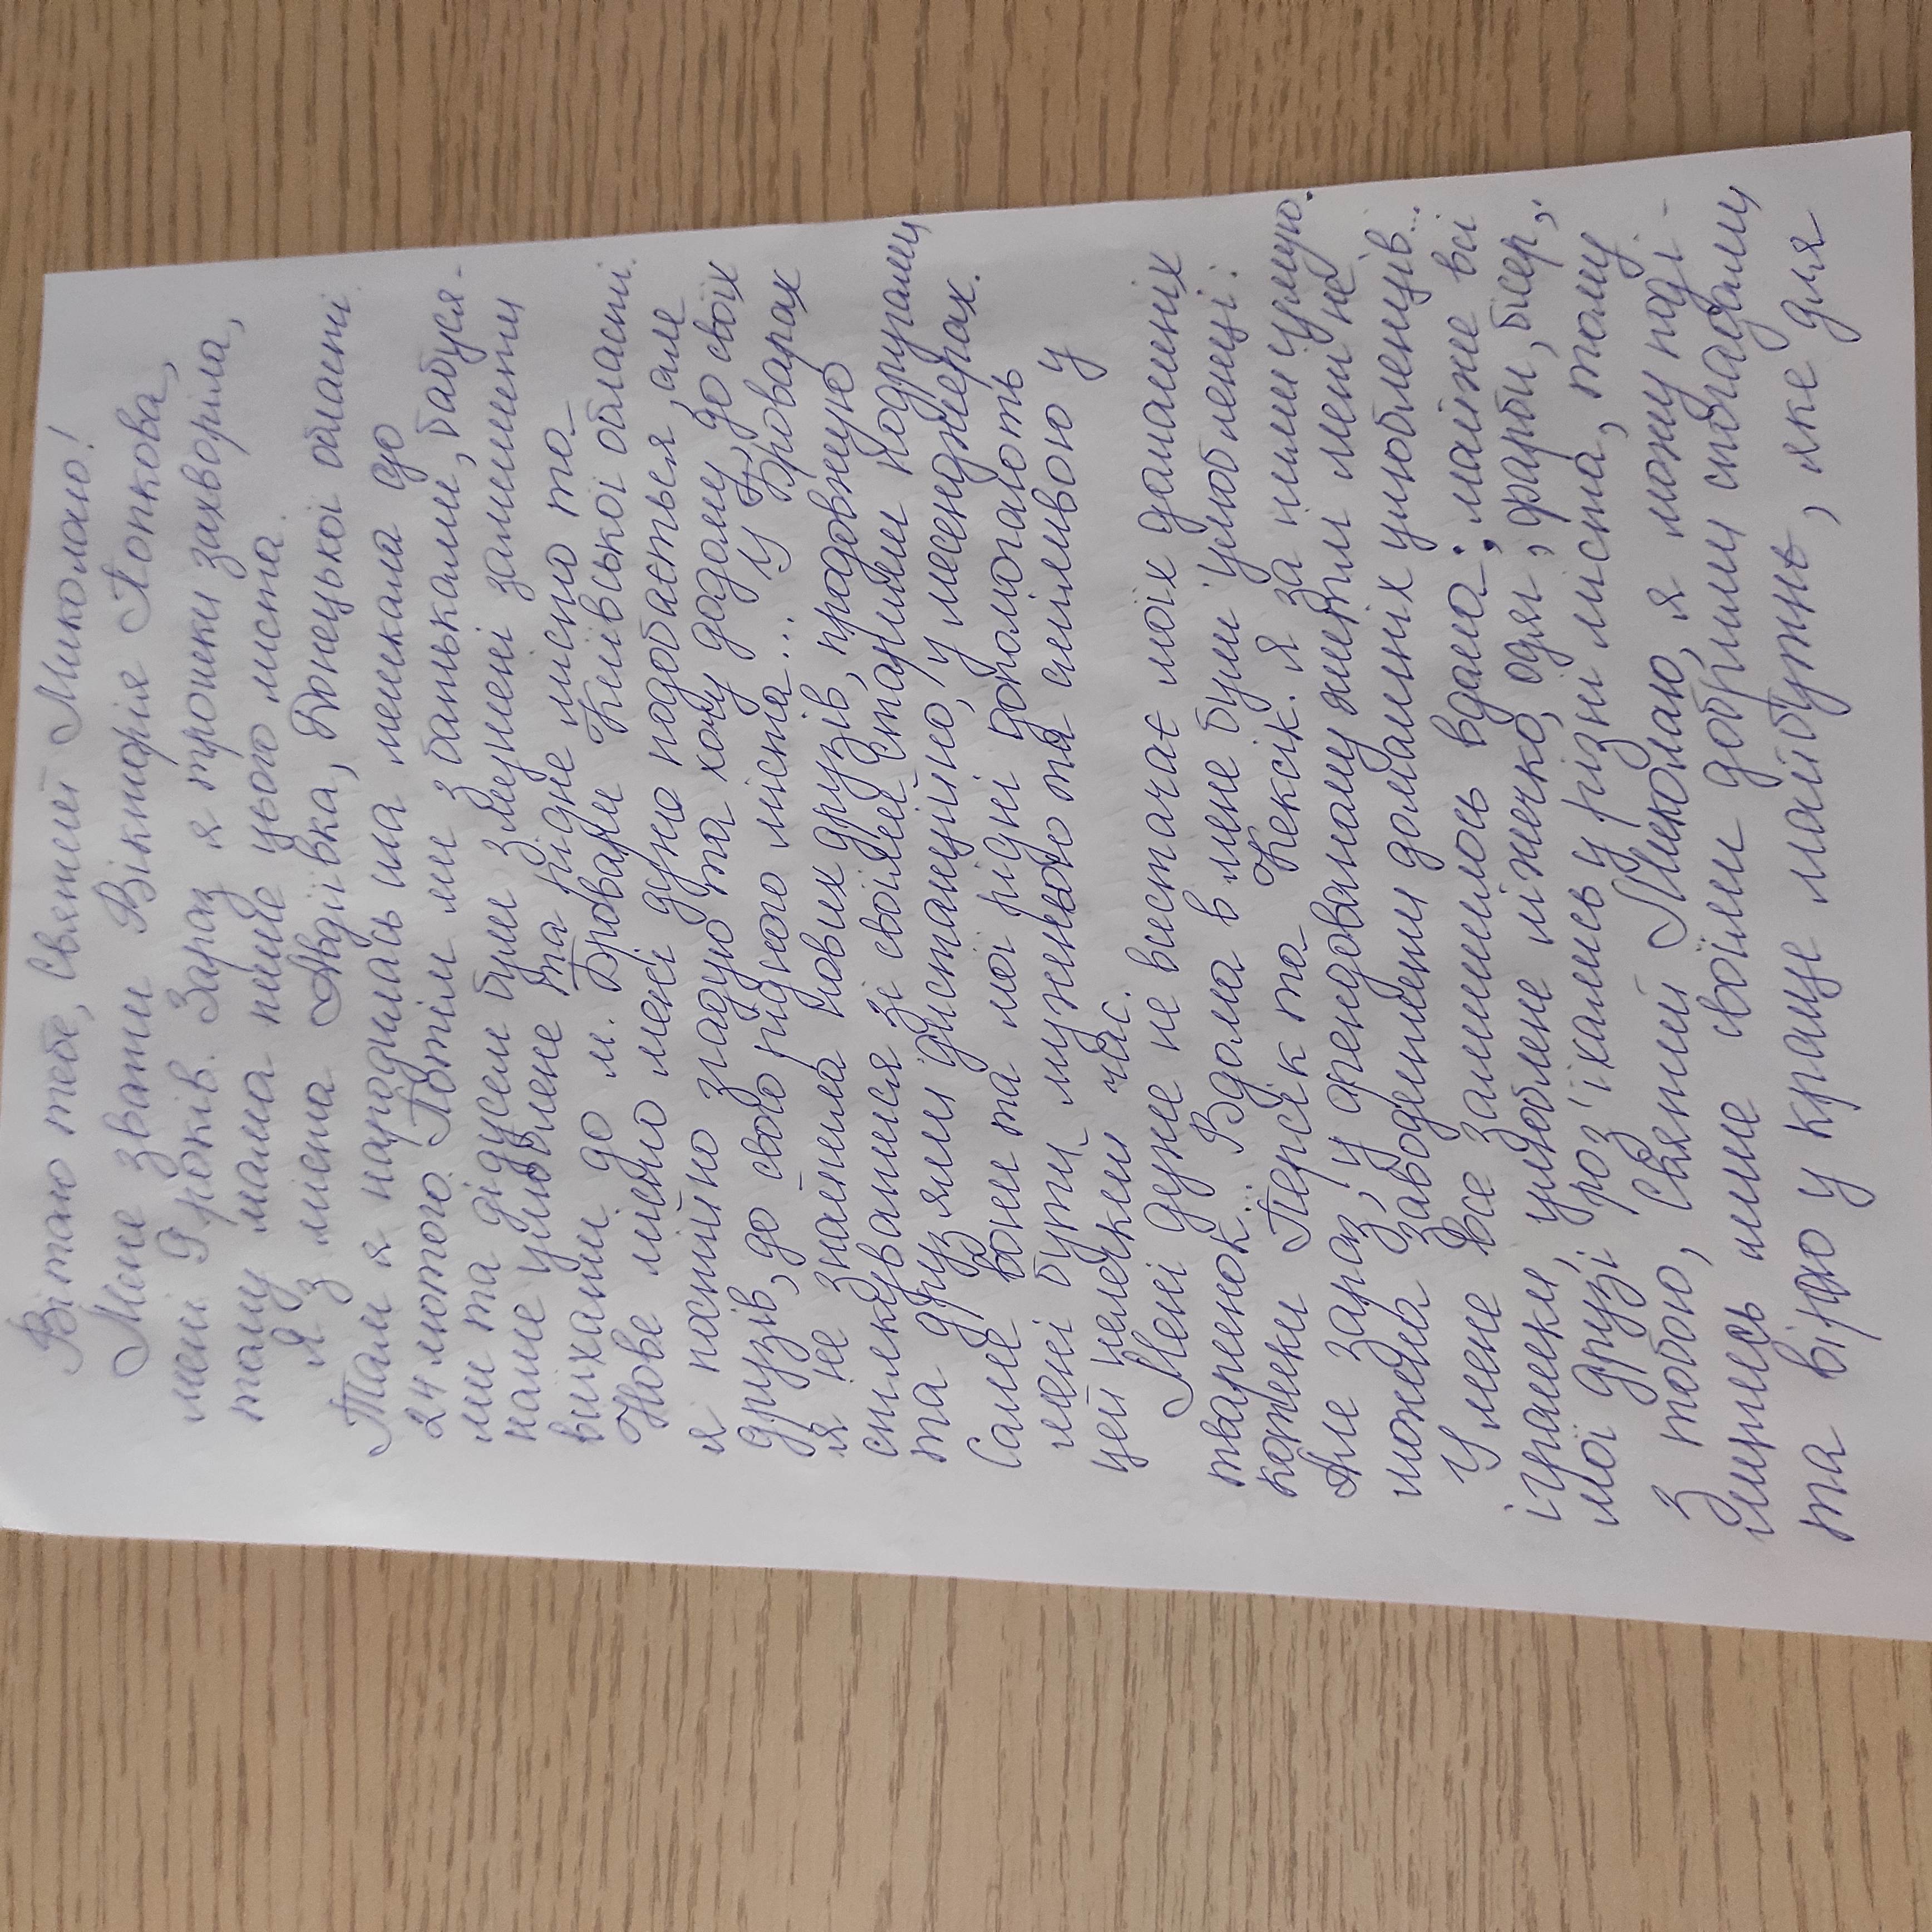 Вітаю тебе, Святий Миколаю!
Мене звати Вікторія Попкова,
мені 9 років. Зараз я трошки захворіла,
тому мама пише цього листа.
Я з міста Авдіївка, Донецької області.
Там я народилась та мешкала до
24 лютого. Потім ми з батьками, бабуся-
ми та дідусем були змушені залишити
наше улюблене та рідне місто та
виїхати до м. Бровари Київської області.
Нове місто мені дуже подобається, але
я постійно згадую та хочу додому, до своїх
друзів, до свого рідного міста... У Броварах
я не знайшла нових друзів, продовжую
спілкуватися зі своїми старими подругами
та друзями дистанційно, у месенджерах.
Саме вони та мої рідні допомогають
мені бути мужньою та сміливою у
цей нелегкий час.
Мені дуже не вистачає моїх домашніх
тваринок... Вдома в мене були улюбленці:
котики Персік та Кексік. Я за ними сумую.
Але зараз, у арендованому житлі мені не
можна заводити домашніх улюбленців...
У мене все залишилось вдома; майже всі
іграшки, улюблене ліжечко, одяг, фарби, бісер,
мої друзі роз'їхались у різні міста, тому
з тобою, Святий Миколаю, я можу поді-
литись лише своїми добрими спогадами
та вірою у краще майбутнє, яке для